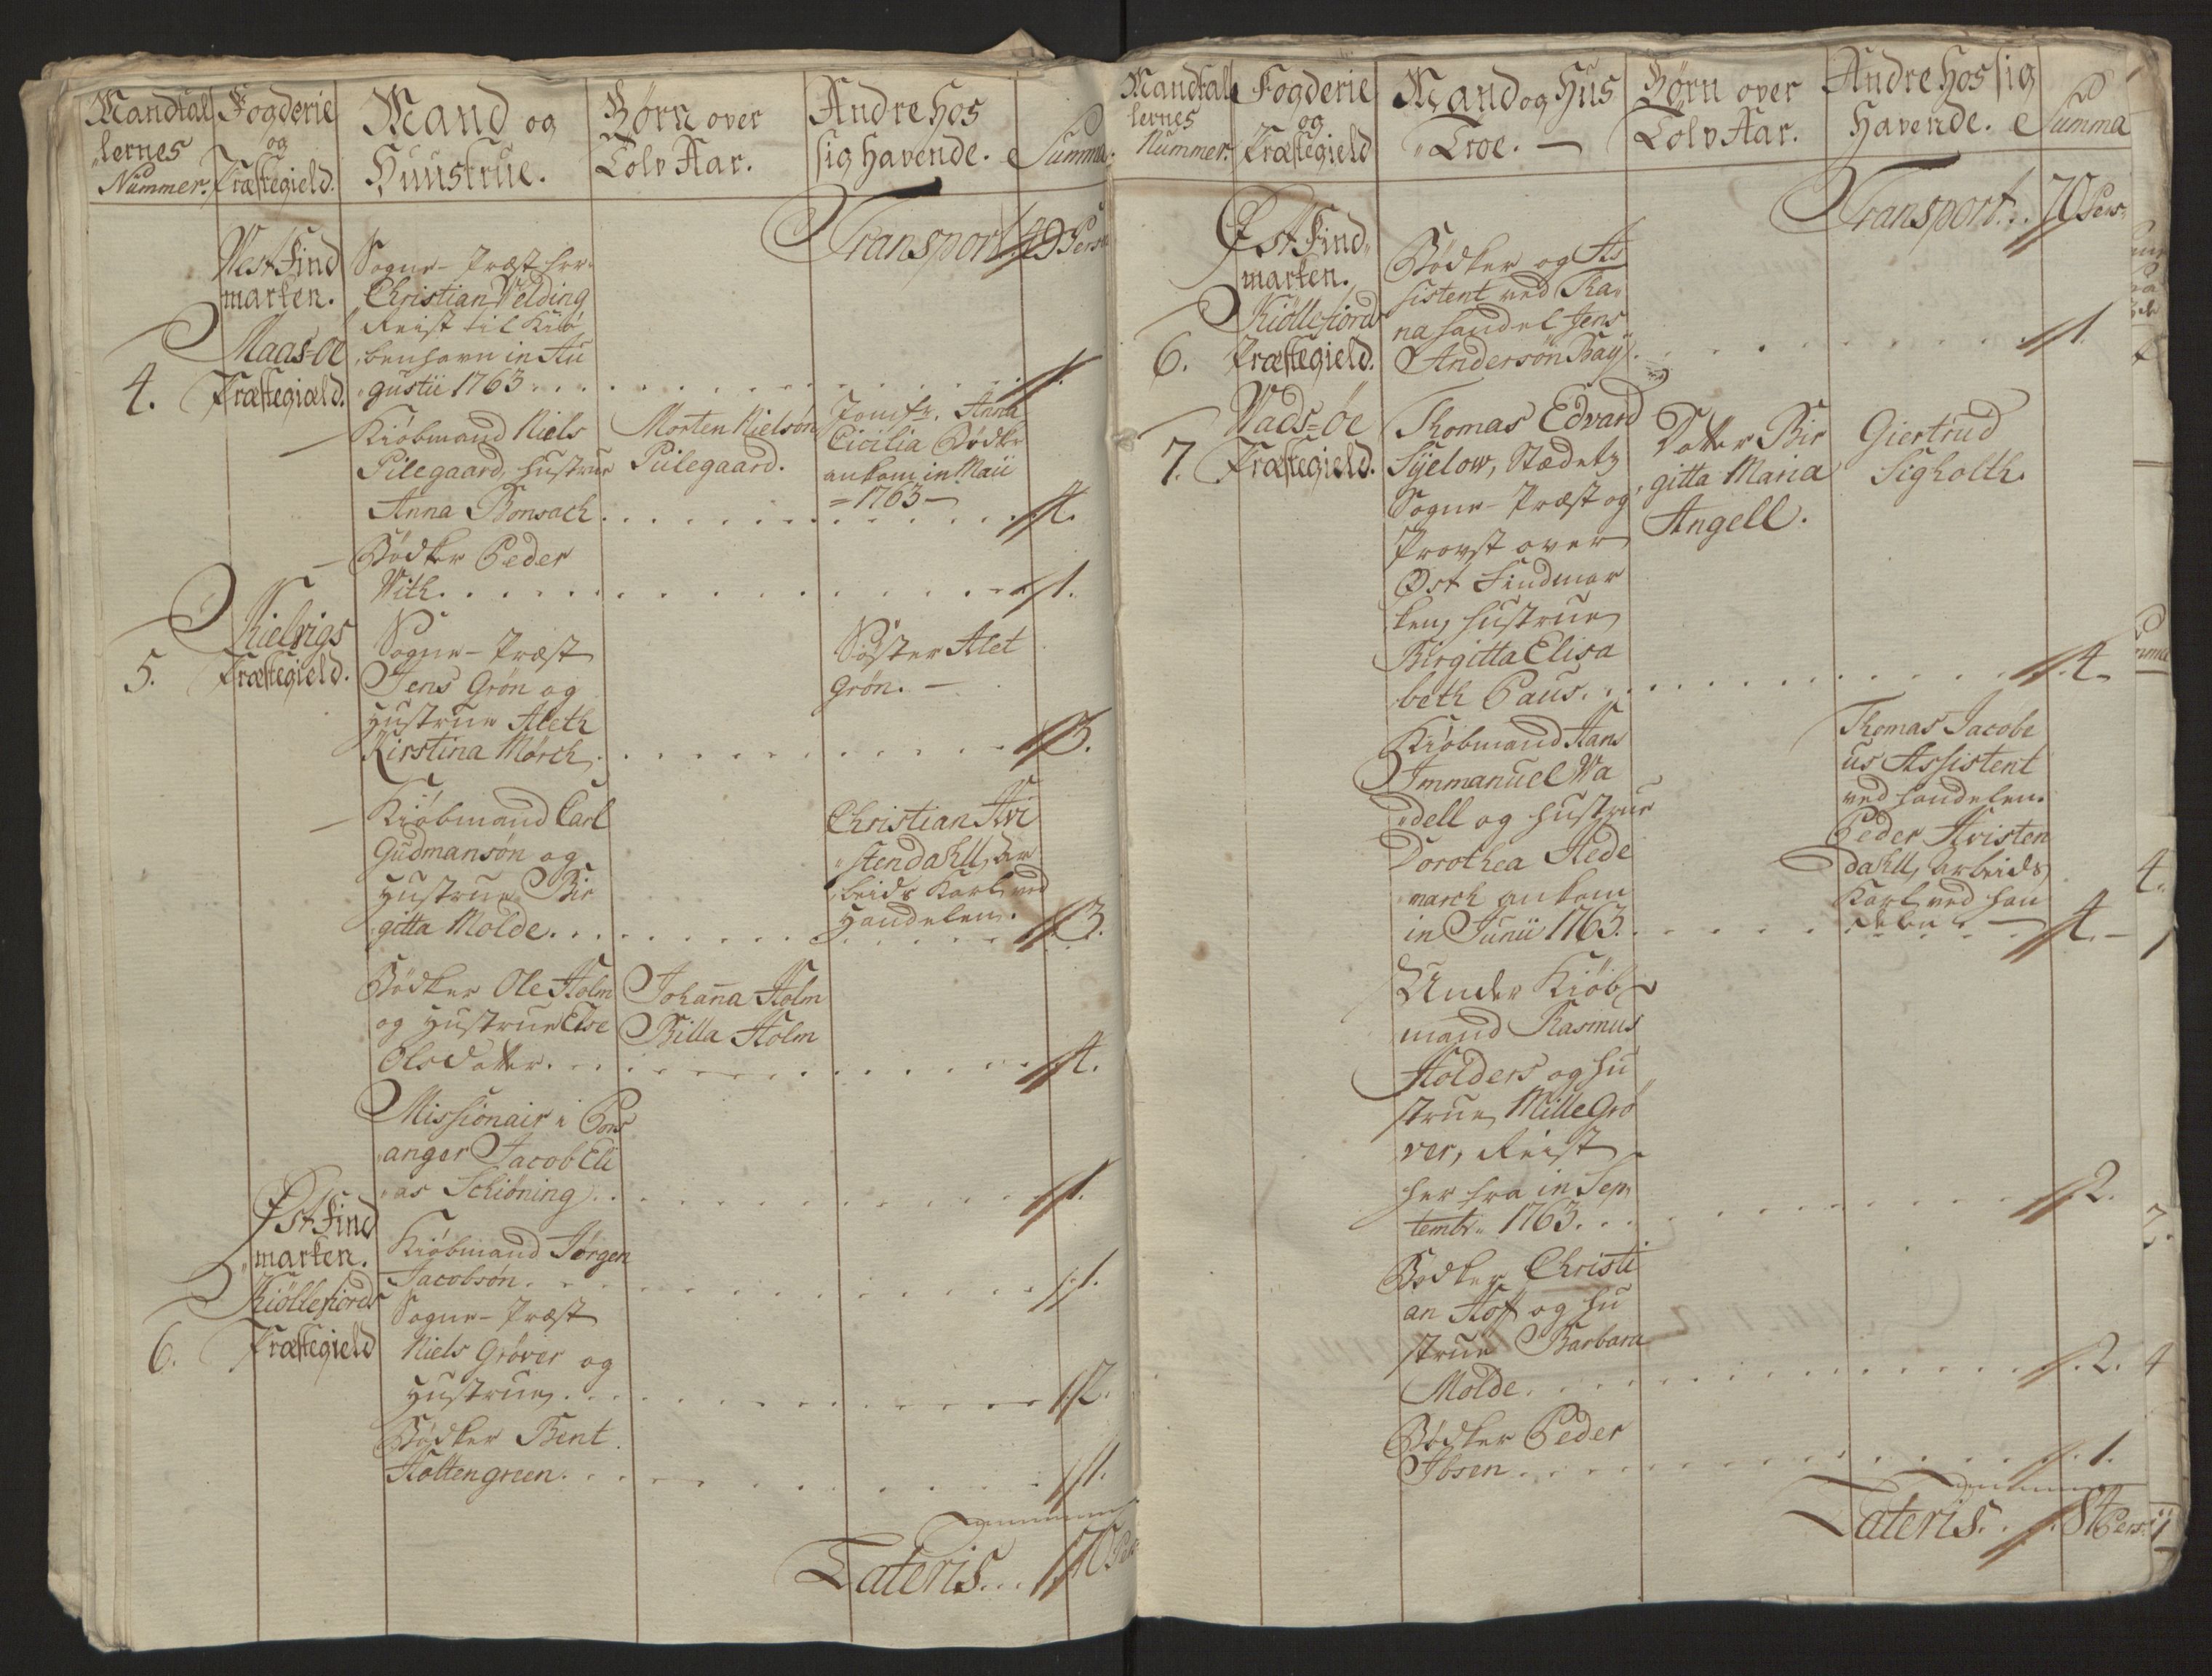 Mandtal
lernes
Nummer.
Fogderie
og
Præstegield.
Mand og
Huustrue.
Børn over
Tolv Aar.
Andre hos
sig havende.
Summa.
Transport 49 Pers
Vest Find
marken.
Maas-öe
4. Præstegiæld.
Sogne-Præst Hr.
Christian Velding
Reist til Kiö
benhavn in Au
gustii 1763 . . . 1.
Kiöbmand Niels
Pilegaard, Hustrue
Anna Bonsach . . . 4.
Morten Nielsøn
Piilegaard.
Jomfr. Anna
Cicilia Bödkr
ankom in Maii
= 1763 —
Bödker Peder
With. . . . 1.
Kielvigs
5. Præstegield.
Sogne-Præst
Jens Grön og
Hustrue Aleth
Kirstina Mörch. . . . 3.
Söster Alet
Grön. —
Kiöbmand Carl
Gudmansön og
Hustrue Bir
gitta Molde. . . . 3.
Christian Hvi
stendahll, Ar
beids Karl ved
Handelen.
Bödker Ole Holm
og Hustrue Else
Olsdatter. . . . 4.
Johanna Holm
Billa Holm
Missionair i Pors
anger Jacob Eli
as Schiöning. . . . 1.
Öst Find
marken.
Kiöllefiords
6. Præstegield
Kiöbmand Jörgen
Jacobsön. . . . 1.
Sogne-Præst
Niels Gröver og
Hustrue. . . . 2.
Bödker Bent
Holtengreen. . . . 1.
Lateris. . . 70 Per
Mandtal
lernes
Nummer.
Fogderie
og
Præstegield
Mand og Hus
Troe. —
Børn over
Tolv Aar.
Andre hos sig
havende.
Summa
Transport. . 70 Pers
Öst Find
marken.
Kiöllefiords
6. Præstegield.
Bödker og As
sistent ved Ta
na Handel Jens
Andersön Bay. . . . 1.
Vads-öe
7. Præstegield.
Thomas Edvard
Syelow, Stædetz
Sogne-Præst og
Provst over
Öst Findmar
ken, Hustrue
Birgitta Elisa
beth Paus. . . . 4
Datter Bir
gitta Maria
Angell.
Giertrud
Sigholth.
Kiöbmand Hans
Immanuel Wa
dell og Hustrue
Dorothea Hede
march ankom
in Junii 1763. . . . 4.
Thomas Jacobe
us Assistent
ved Handelen.
Peder Hvisten
dahll, Arbeids
Karl ved Han
delen
Under Kiöb
mand Rasmus
Holders og Hu
strue Mille Grö
ver, Reist
her fra in Sep
tembr. 1763. . . . 2.
Bödker Christi
an Hoff og Hu
strue Barbara
Molde. . . . 2.
Bödker Peder
Ibsen. . . . 1.
Lateris. . . 84 Pers